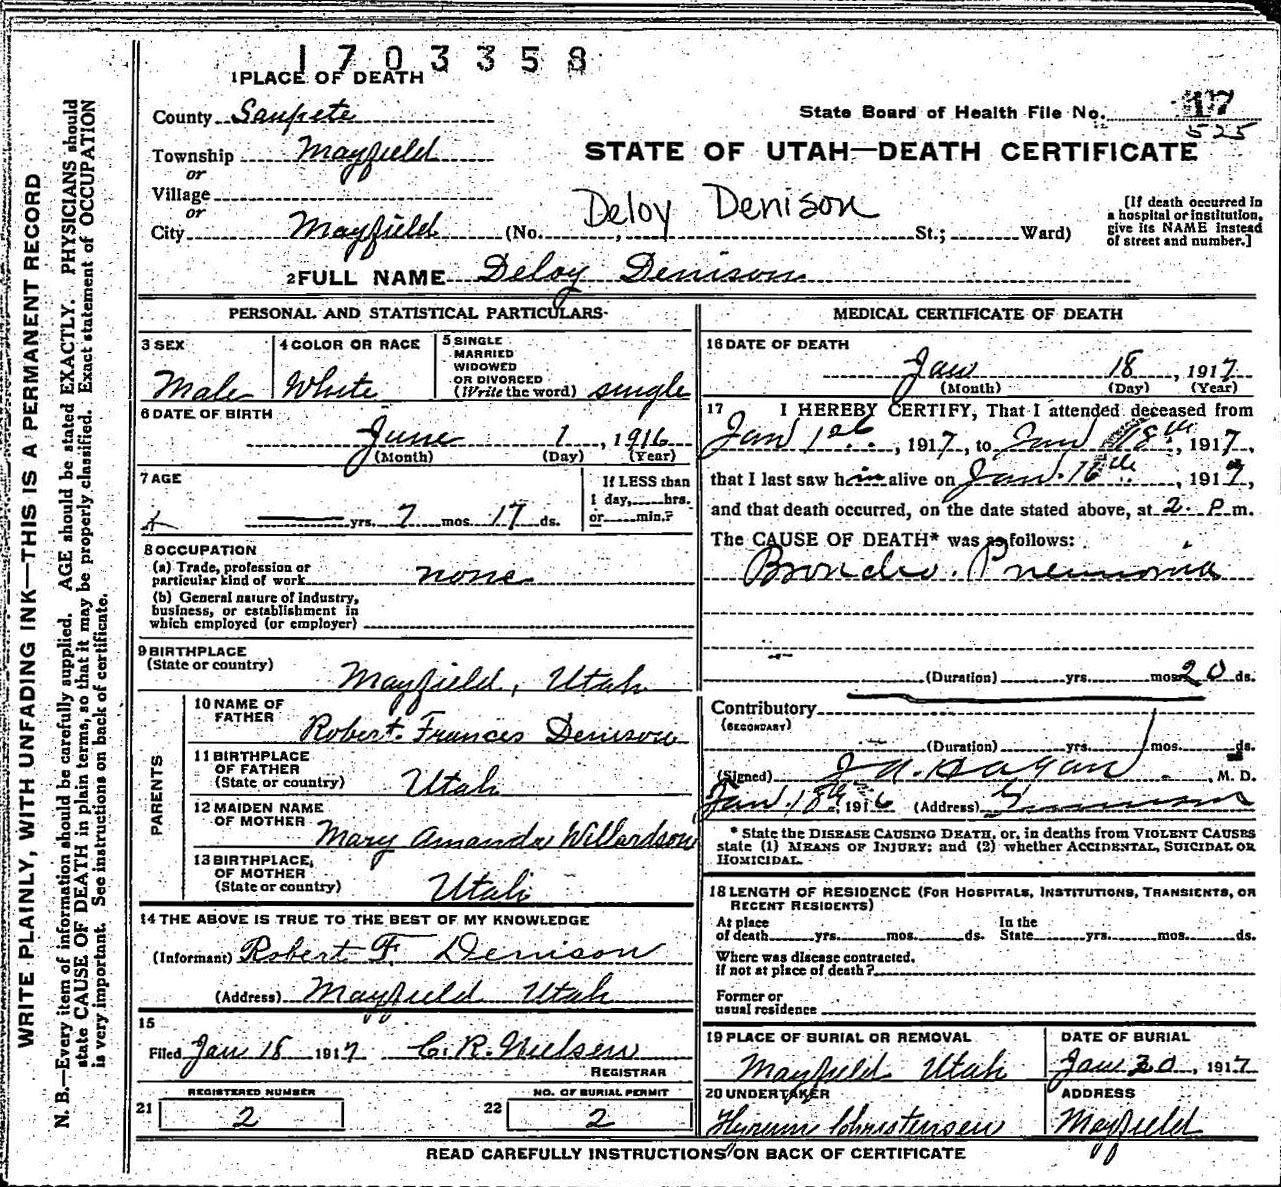 1703358
1 PLACE OF DEATH
County Sanpete
State Board of Health File No. 17
525
Township Mayfield
or
STATE OF UTAH—DEATH CERTIFICATE
Village
or
Deloy Denison
City Mayfield (No. , St.; Ward)
[If death occurred in
a hospital or institution,
give its NAME instead
of street and number.]
2 FULL NAME Deloy Denison
PERSONAL AND STATISTICAL PARTICULARS
3 SEX
Male
4 COLOR OR RACE
White
5 SINGLE
MARRIED
WIDOWED
OR DIVORCED
(Write the word) single
6 DATE OF BIRTH
June 1, 1916
(Month) (Day) (Year)
7 AGE
yrs. 7 mos. 17 ds.
If LESS than
1 day, hrs.
or min.?
8 OCCUPATION
(a) Trade, profession or
particular kind of work none
(b) General nature of industry,
business, or establishment in
which employed (or employer)
9 BIRTHPLACE
(State or country)
Mayfield, Utah
PARENTS
10 NAME OF
FATHER
Robert Frances Denison
11 BIRTHPLACE
OF FATHER
(State or country) Utah
12 MAIDEN NAME
OF MOTHER
Mary Amanda Willardson
13 BIRTHPLACE
OF MOTHER
(State or country) Utah
14 THE ABOVE IS TRUE TO THE BEST OF MY KNOWLEDGE
(Informant) Robert F. Denison
(Address) Mayfield Utah
15
Filed Jan 18 1917 C. R. Nielsen
REGISTRAR
REGISTERED NUMBER
21 2
NO. OF BURIAL PERMIT
22 2
MEDICAL CERTIFICATE OF DEATH
16 DATE OF DEATH
Jan 18, 1917
(Month) (Day) (Year)
17 I HEREBY CERTIFY, That I attended deceased from
Jan 1st, 1917, to Jan 18th, 1917,
that I last saw him alive on Jan. 16th, 1917,
and that death occurred, on the date stated above, at 2 P m.
The CAUSE OF DEATH* was as follows:
Broncho. Pneumonia
(Duration) yrs. mos. 20 ds.
Contributory
(SECONDARY)
(Duration) yrs. mos. ds.
(Signed) J A. Hagan, M. D.
Jan. 18th 1916 (Address)
* State the DISEASE CAUSING DEATH, or, in deaths from VIOLENT CAUSES
state (1) MEANS OF INJURY; and (2) whether ACCIDENTAL, SUICIDAL OR
HOMICIDAL.
18 LENGTH OF RESIDENCE (FOR HOSPITALS, INSTITUTIONS, TRANSIENTS, OR
RECENT RESIDENTS)
At place
of death yrs. mos. ds.
In the
State yrs. mos. ds.
Where was disease contracted,
if not at place of death?
Former or
usual residence
19 PLACE OF BURIAL OR REMOVAL
Mayfield Utah
DATE OF BURIAL
Jan 20, 1917
20 UNDERTAKER
Hyrum Christensen
ADDRESS
Mayfield
READ CAREFULLY INSTRUCTIONS ON BACK OF CERTIFICATE
WRITE PLAINLY, WITH UNFADING INK—THIS IS A PERMANENT RECORD
N. B.—Every item of information should be carefully supplied. AGE should be stated EXACTLY. PHYSICIANS should
state CAUSE OF DEATH in plain terms, so that it may be properly classified. Exact statement of OCCUPATION
is very important. See instructions on back of certificate.